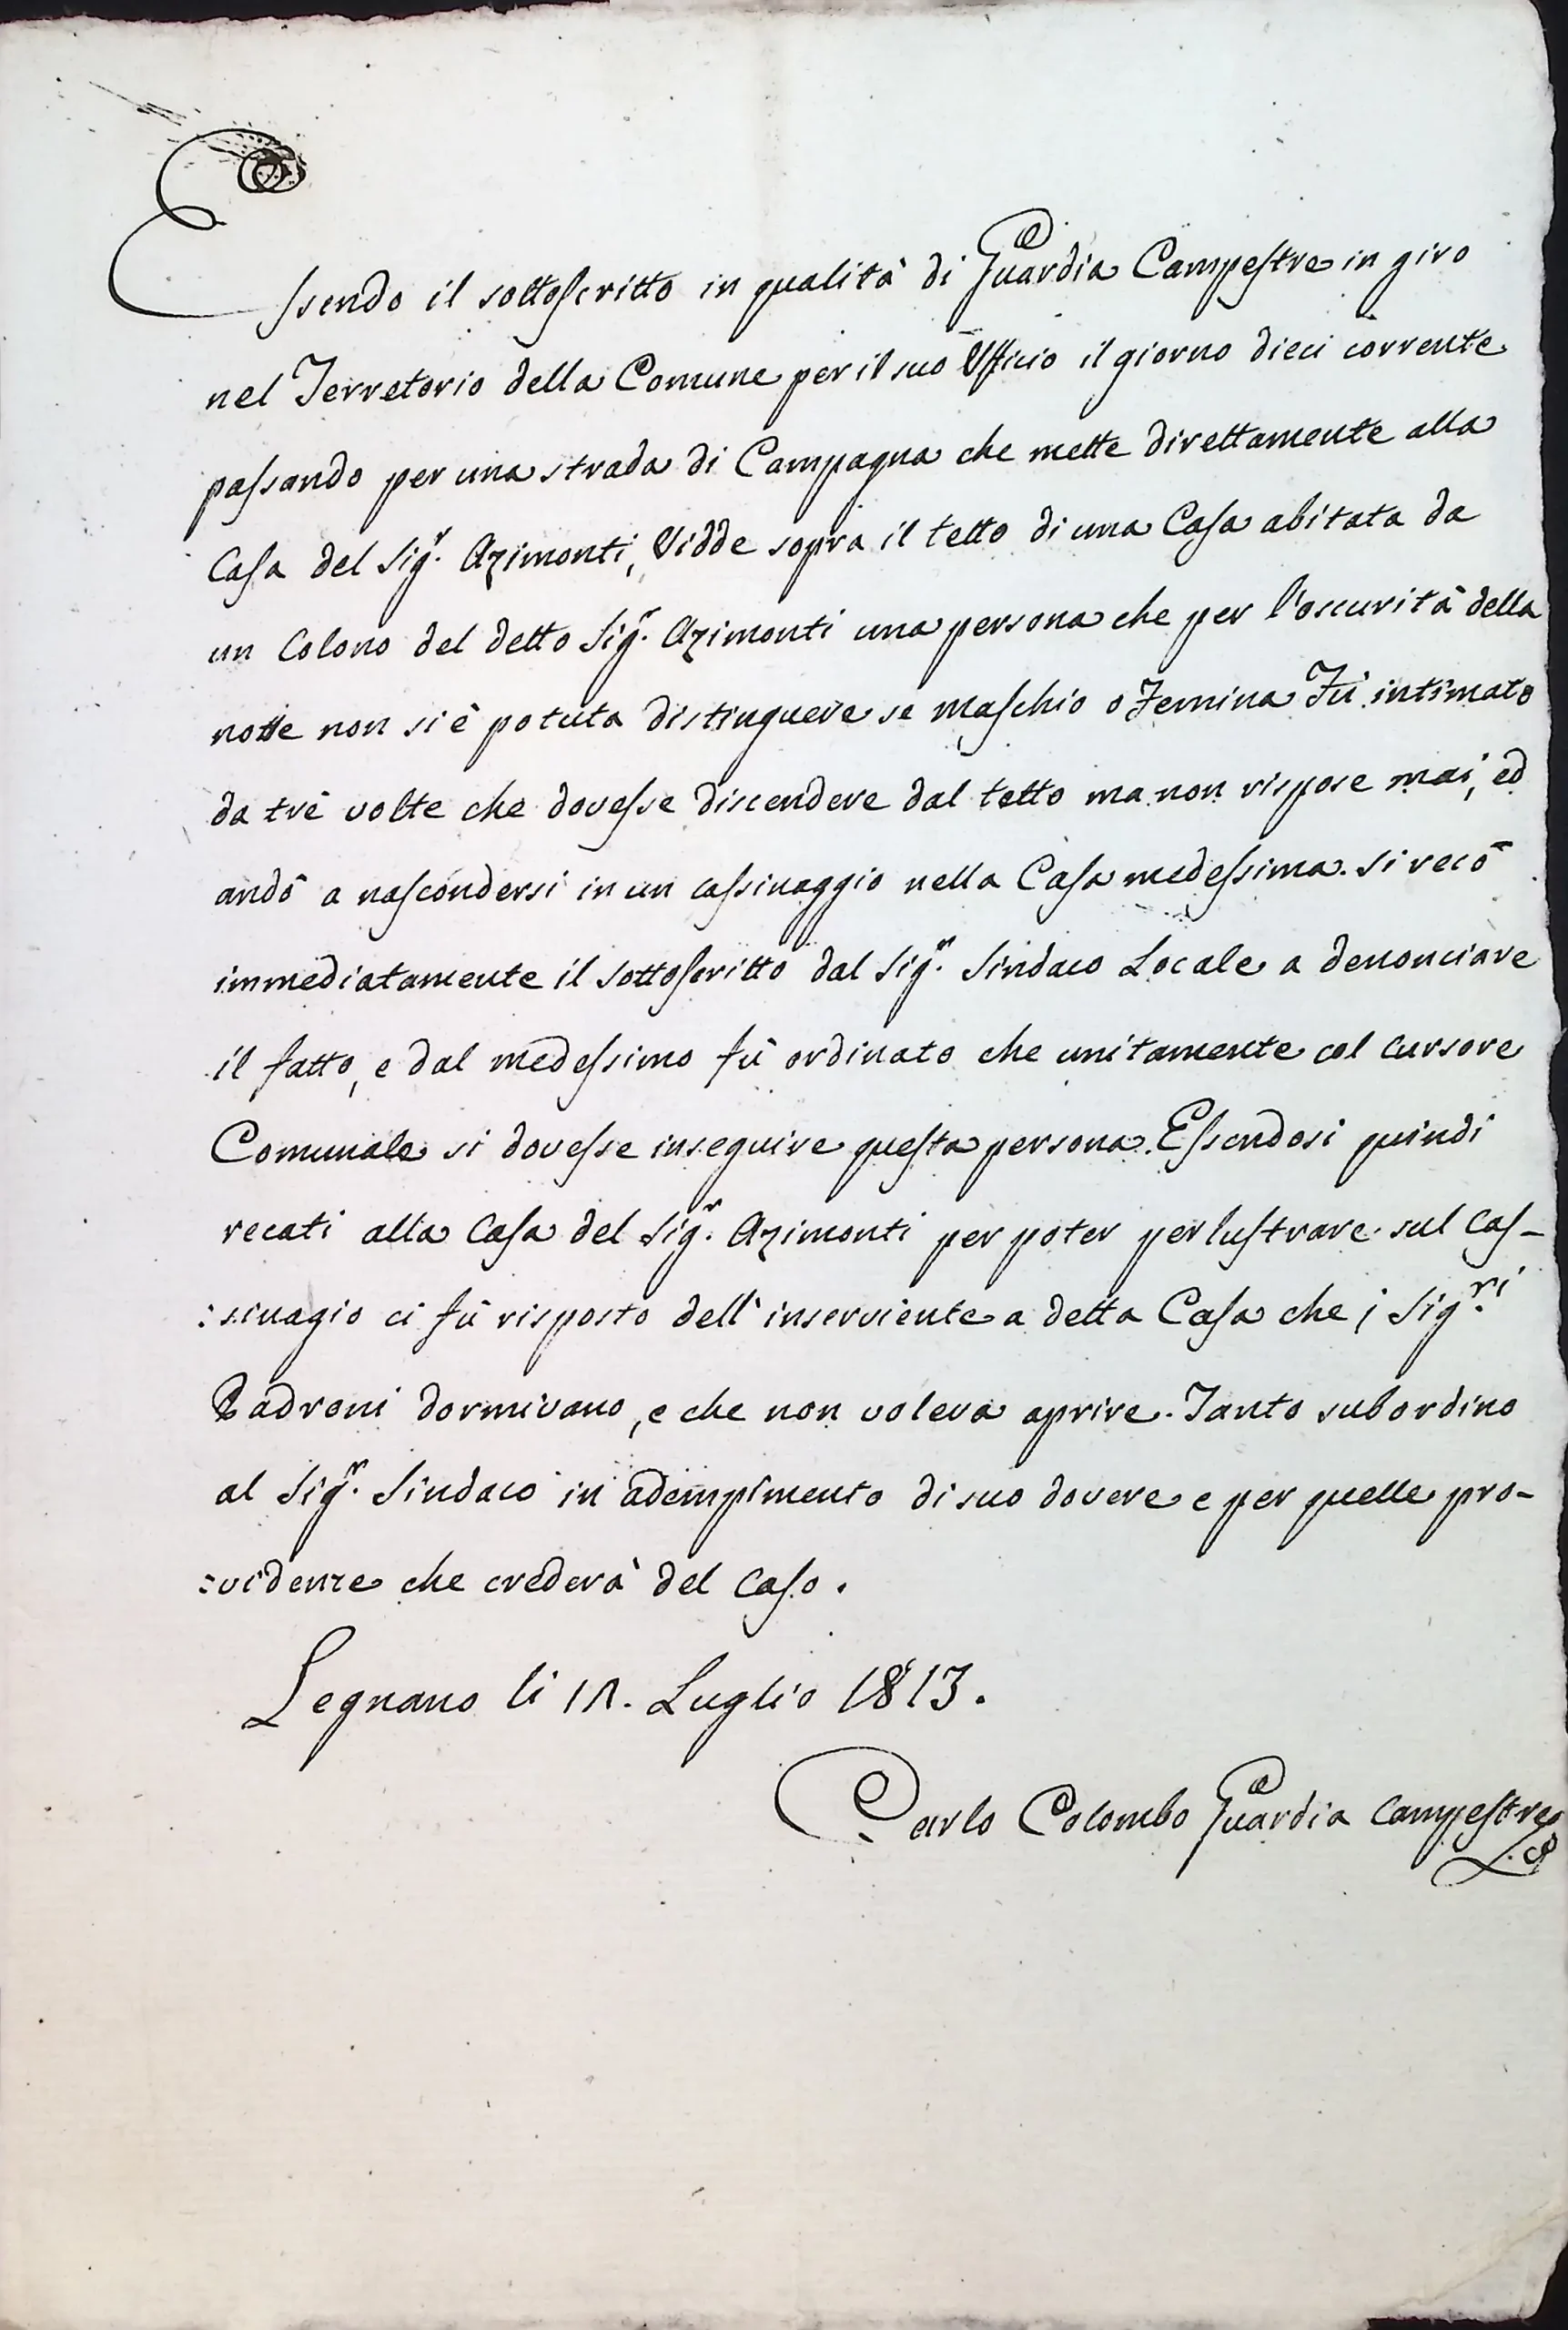 Essendo il sottoscritto in qualità di Guardia Campestre in giro
nel Terretorio della Comune per il suo Ufficio il giorno dieci corrente
passando per una strada di Campagna che mette direttamente alla
Casa del Sig.r Azimonti, Vidde sopra il tetto di una Casa abitata da
un Colono del detto Sig.r Azimonti una persona che per l'oscurità della
notte non si è potuta distinguere se maschio o Femina Fù intimato
da trè volte che dovesse discendere dal tetto ma non rispose mai, ed
andò a nascondersi in un cassinaggio nella Casa medessima. Si recò
immediatamente il Sottoscritto dal Sig.r Sindaco Locale a denonciare
il fatto, e dal medessimo fù ordinato che unitamente col Cursore
Comunale si dovesse inseguire questa persona. Essendosi quindi
recati alla Casa del Sig.r Azimonti per poter perlustrare sul Cas-
:sinagio ci fù risposto dell'inserviente a detta Casa che i Sig.ri
Padroni dormivano, e che non voleva aprire. Tanto subordino
al Sig.r Sindaco in adempimento di suo dovere e per quelle pro-
:videnze che crederà del Caso.
Legnano li Luglio 1813.
Carlo Colombo Guardia Campestre